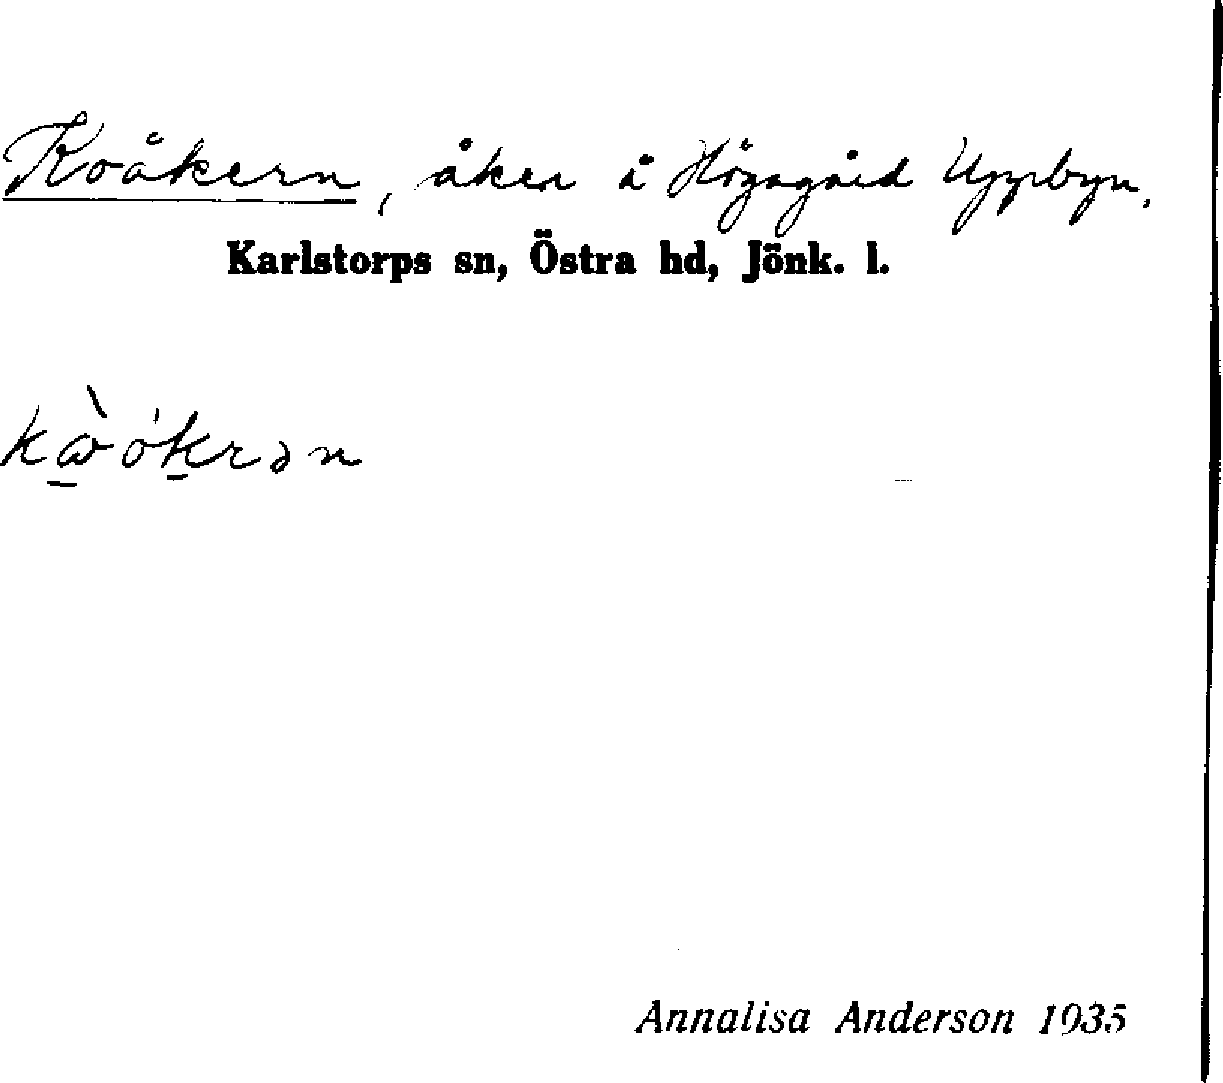 Koåkern, åker å Högagård Uppbyn.
Karlstorps sn, Östra hd, Jönk. l.
Annalisa Anderson 1935